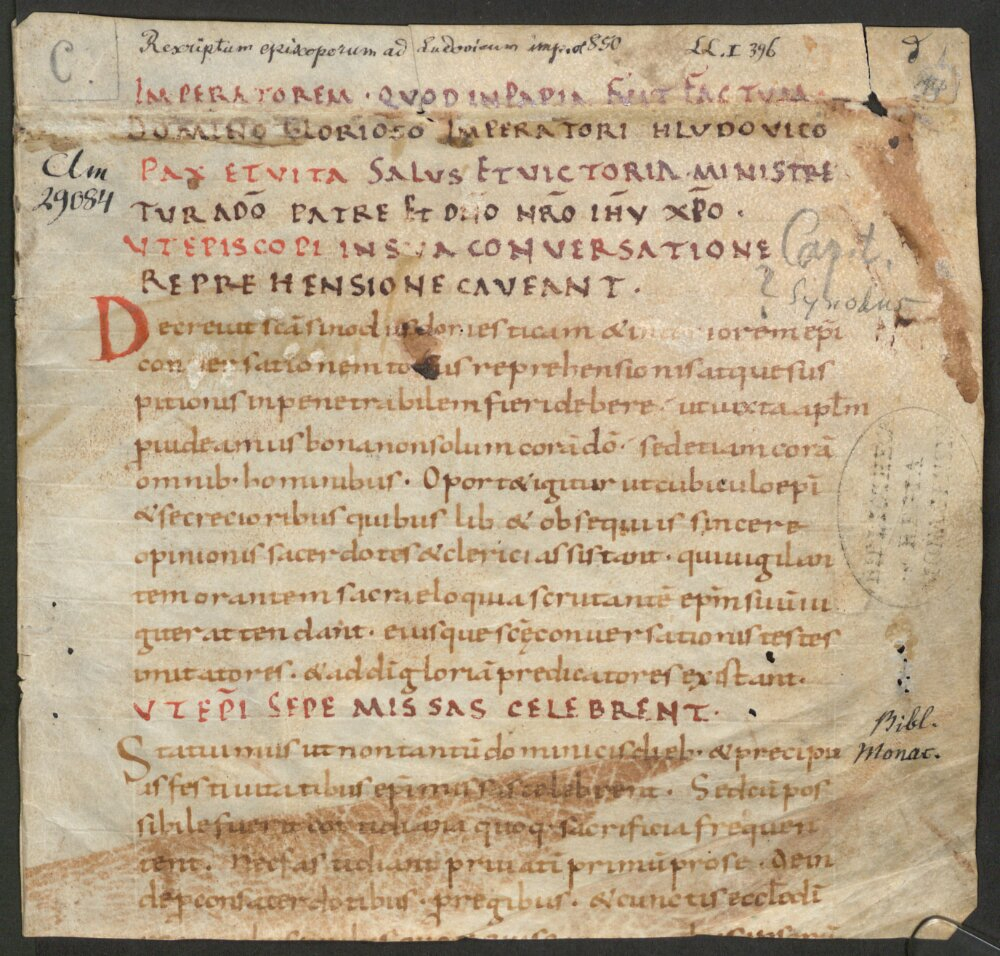 C.
Rescriptum episcoporum ad Ludovicum imp. 850 LL.I 396
IMPERATOREM · QUOD INPAPIA FUIT FACTUM
DOMINO GLORIOSO IMPERATORI HLUDOVICO
Clm
29084
PAX ETVITA SALUS ETVICTORIA · MINISTRE
TURADŌ PATRE ET DNO NR̄O IHV XP̄O ·
VTEPISCOPI INSVACONVERSATIONE
REPREHENSIONE CAVEANT ·
Capit.
? Synodus
Decreuit sc̄a sinodus domesticam & interiorem ep̄i
conuersationem totius reprehensionis atque sus
pitionis inpenetrabilem fieri debere · ut iuxta apl̄m
puideamus bona non solum corā dō · sed etiam corā
omnib· hominibus · Oport& igitur ut cubiculo ep̄i
& secrecioribus quibus lib & obsequiis sincere
opinionis sacerdotes & clerici assistant · qui uigilan
tem orantem sacra eloquia scrutantē ep̄m suum iu
giter attendant · eiusque scę conuersationis testes
imitatores · & ad dī gloriā predicatores existant ·
VT EP̄I SEPE MISSAS CELEBRENT ·
Statuimus ut non tantū dominicis dieb· & precipu
is festiuitatibus ep̄i missas celebrent · Sed cū pos
sibile fuerit cotidiana quoq· sacrificia frequen
tent · Nec fastidiant priuatī primū pro se · Dein
de p consacerdotibus · p regibus · & cunctis eccl̄ę dī
Bibl.
Monac.
BIBLIOTHECA
REGIA
MONACENSIS